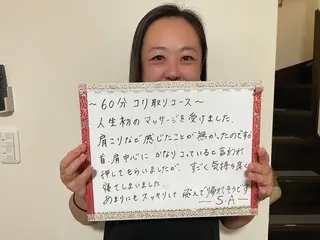 ～60分 コリ取りコース～
人生初のマッサージを受けました。
肩こりなど感じたことが無かったのですが
首、肩中心にかなりこっていると言われ
押してもらいましたが、すごく気持ち良く
寝てしまいました。
あまりにもスッキリして飛んで帰れそうです
―S.A―